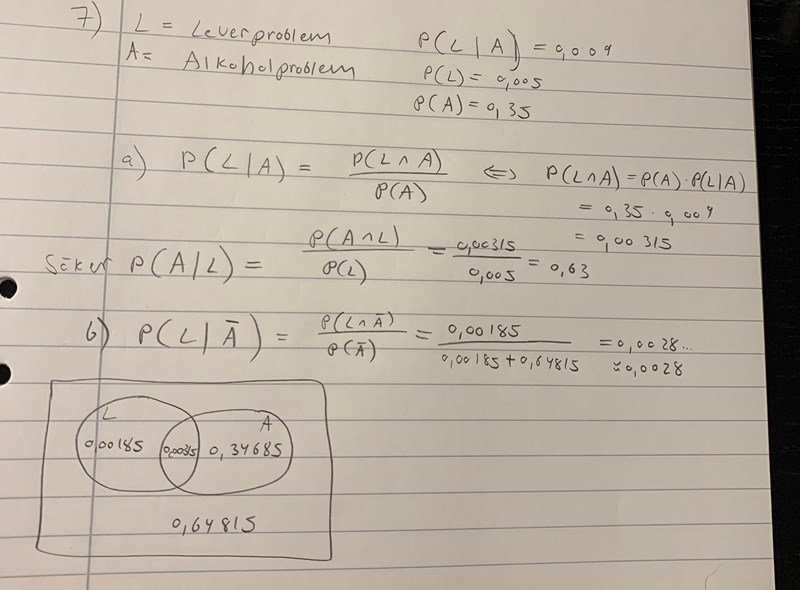 7) L = Leverproblem P(L|A) = 0,009
A= Alkoholproblem P(L) = 0,005
P(A) = 0,35
a) P(L|A) = P(L∩A) / P(A) ⇔ P(L∩A) = P(A)·P(L|A)
= 0,35 · 0,009
= 0,00315
Söker P(A|L) = P(A∩L) / P(L) = 0,00315 / 0,005 = 0,63
b) P(L|Ā) = P(L∩Ā) / P(Ā) = 0,00185 / 0,00185+0,64815 = 0,0028...
≈0,0028
L A
0,00185 0,00315 0,34685
0,64815